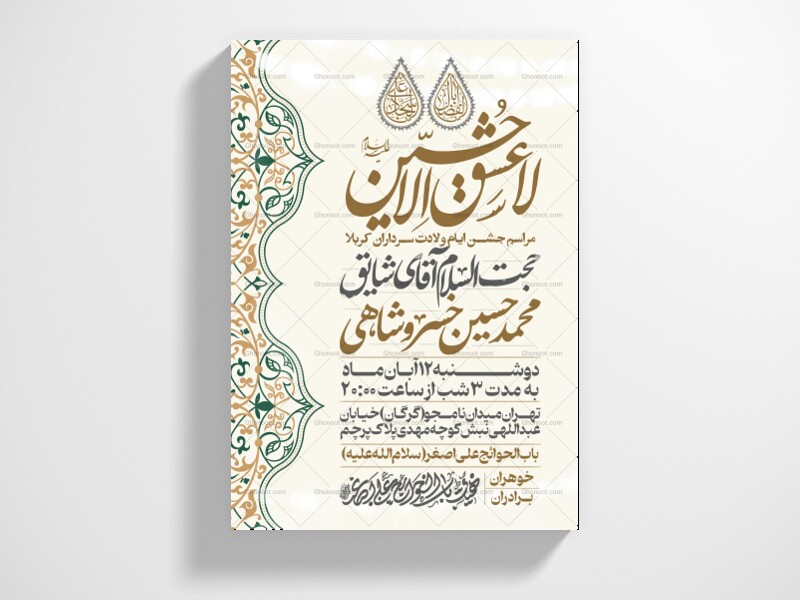 یا ابالفضل
یا سجاد
لا عشق الا حسین
علیه السلام
مراسم جشن ایام ولادت سرداران کربلا
حجت السلام آقای شایق
محمد حسین خسروشاهی
دوشنبه ۱۲ آبان ماه
به مدت ۳ شب از ساعت ۲۰:۰۰
تهران میدان نامجو (گرگان) خیابان
عبداللهی نبش کوچه مهدی پلاک پرچم
باب الحوائج علی اصغر (سلام الله علیه)
خواهران
برادران
Ghonoot.com